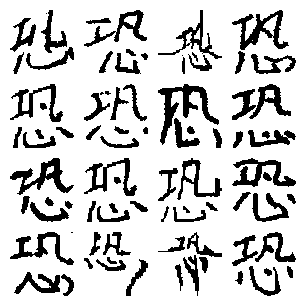 恐恐恐恐
恐恐恐恐
恐恐恐恐
恐恐恐恐